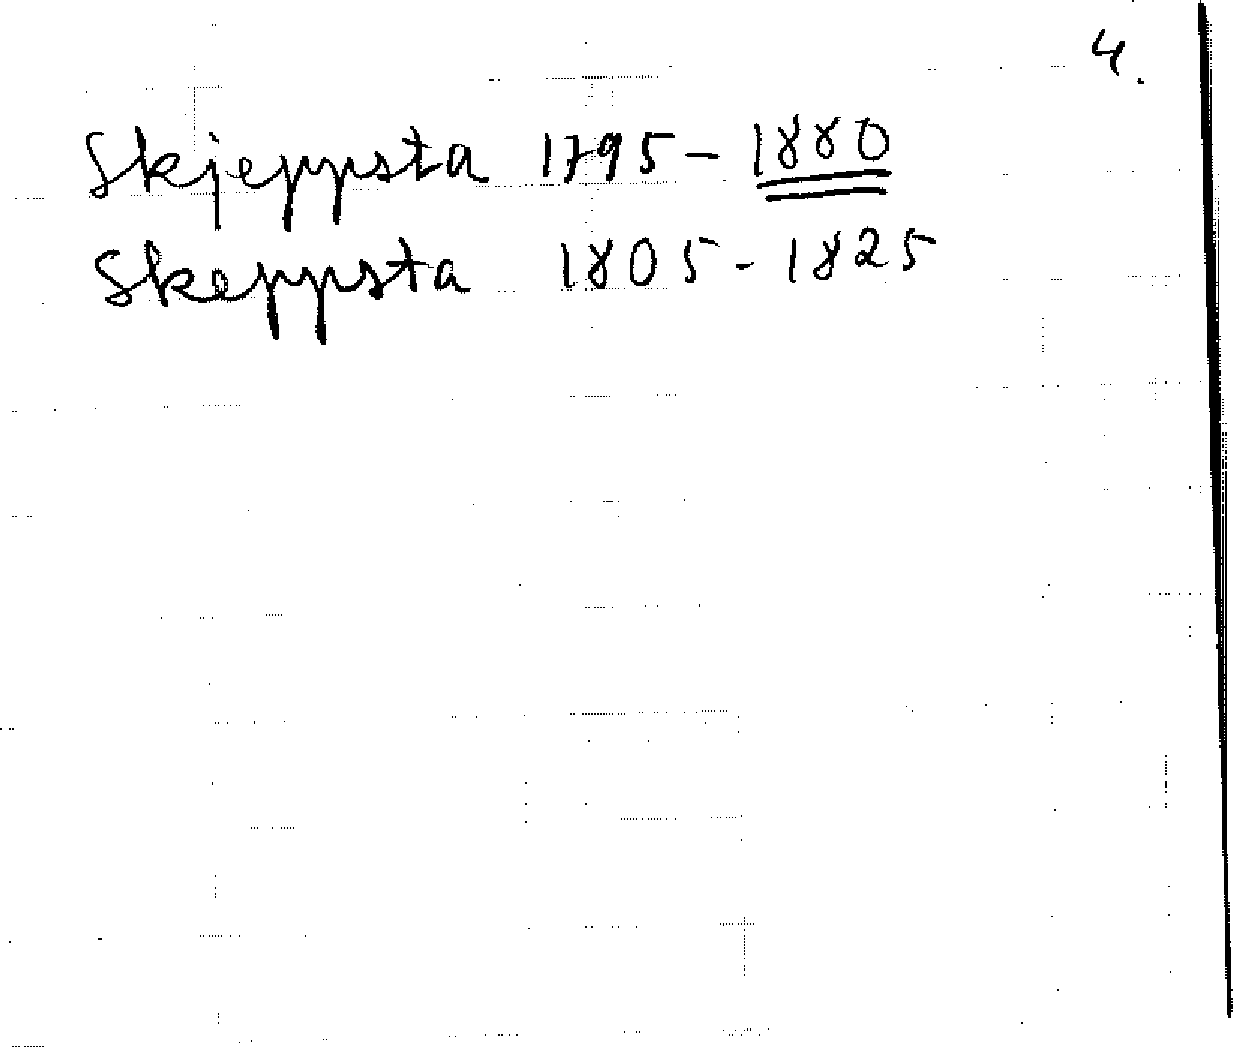 4.
Skjeppsta 1795 - 1880
Skeppsta 1805 - 1825